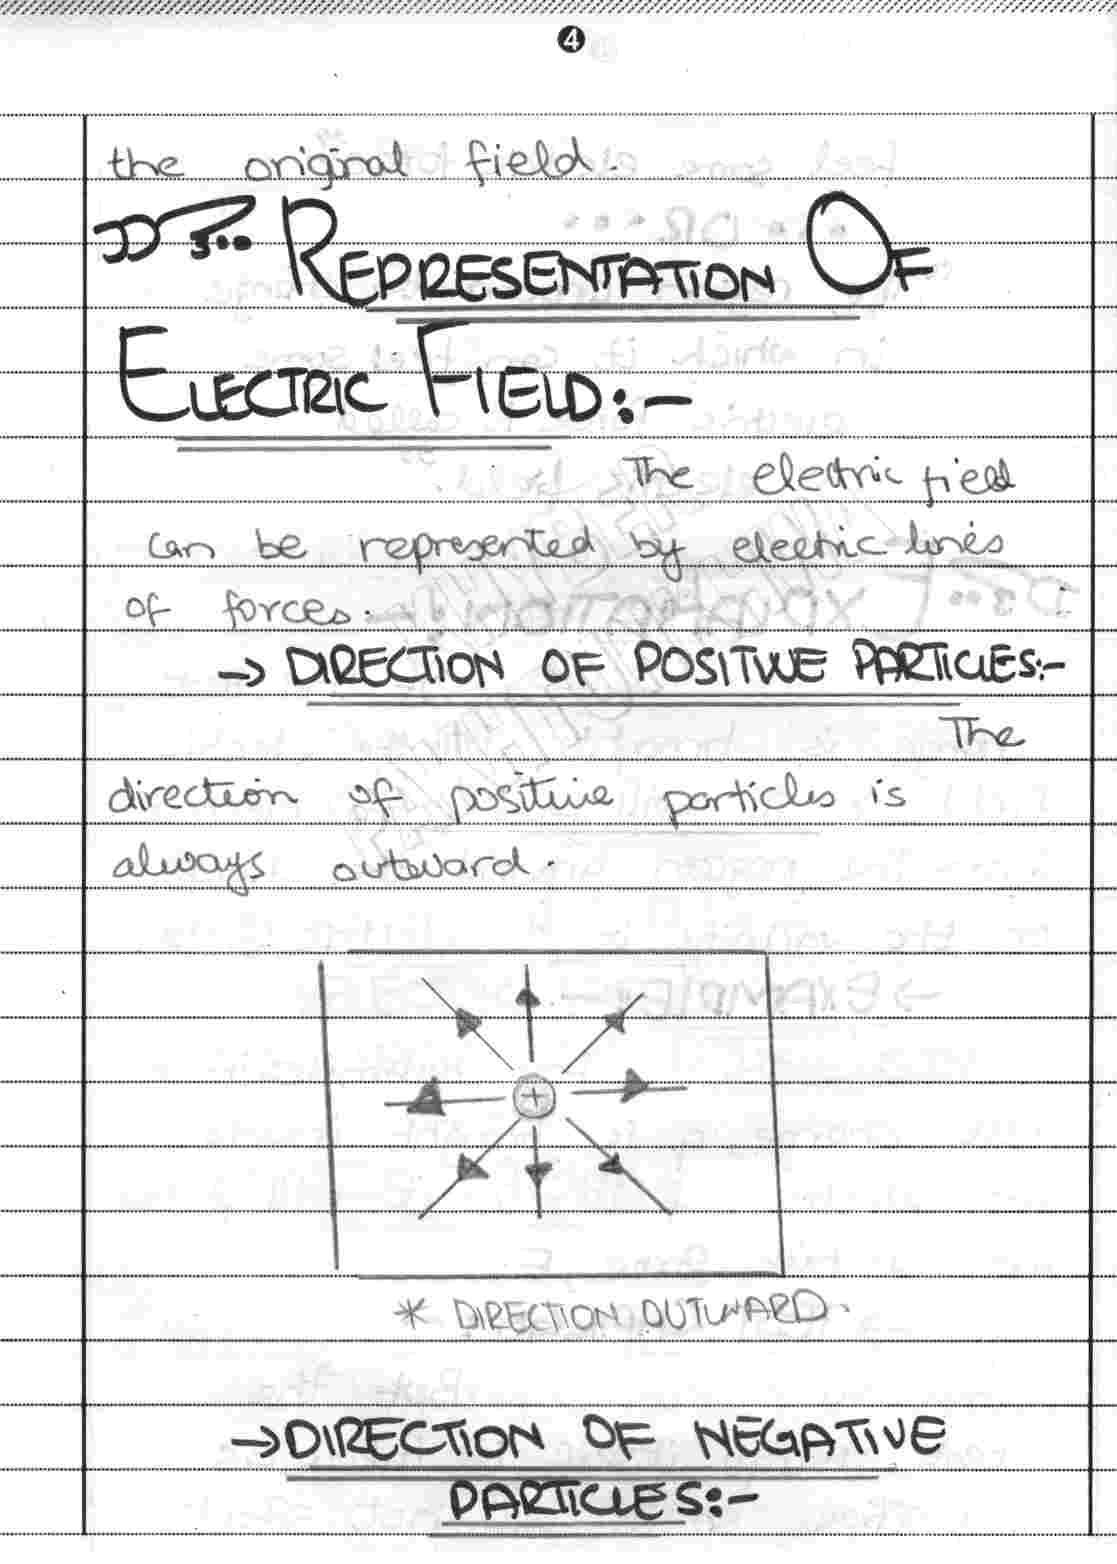 4
the original field.
REPRESENTATION OF
ELECTRIC FIELD:-
The electric field
can be represented by electric lines
of forces.
→ DIRECTION OF POSITIVE PARTICLES:-
The
direction of positive particles is
always outward.
+
* DIRECTION OUTWARD.
→ DIRECTION OF NEGATIVE
PARTICLES:-